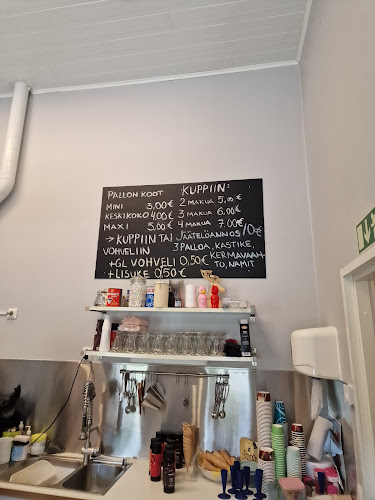 PALLON KOOT
MINI 3.00€
KESKIKOKO 4.00€
MAXI 5.00€
→ KUPPIIN TAI
VOHVELIIN
+GL VOHVELI 0,50€
+LISUKE 0,50€
KUPPIIN:
2 MAKUA 5,00€
3 MAKUA 6.00€
4 MAKUA 7.00€
JÄÄTELÖANNOS 10€
3 PALLOA, KASTIKE,
KERMAVAAH-
TO, NAMIT